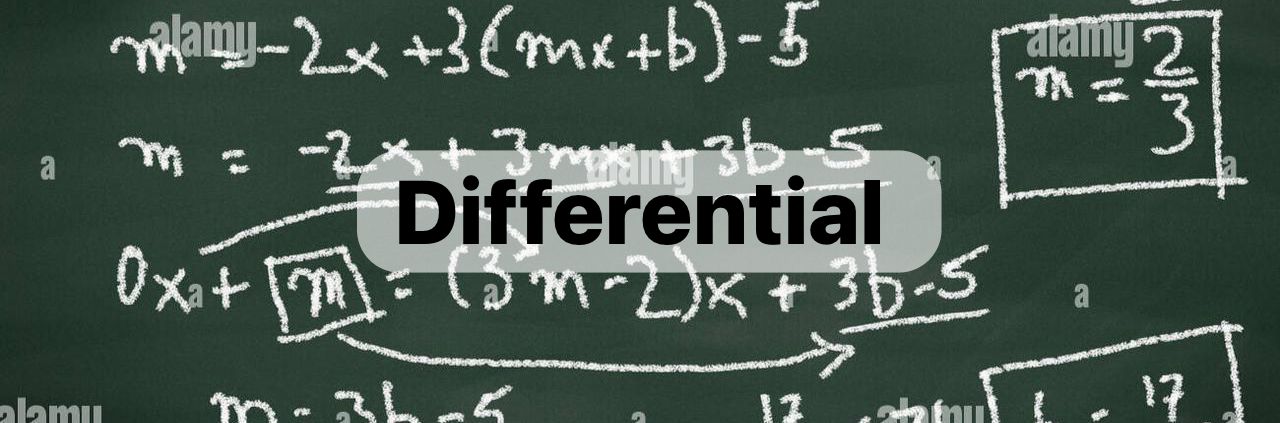 m = -2x + 3(mx+b) - 5
m = 2/3
m = -2x + 3mx + 3b - 5
Differential
0x + m = (3m - 2)x + 3b - 5
m = 3b - 5
17
17
alamy
alamy
alamy
alamy
alamy
a
a
a
a
a
a
a
a